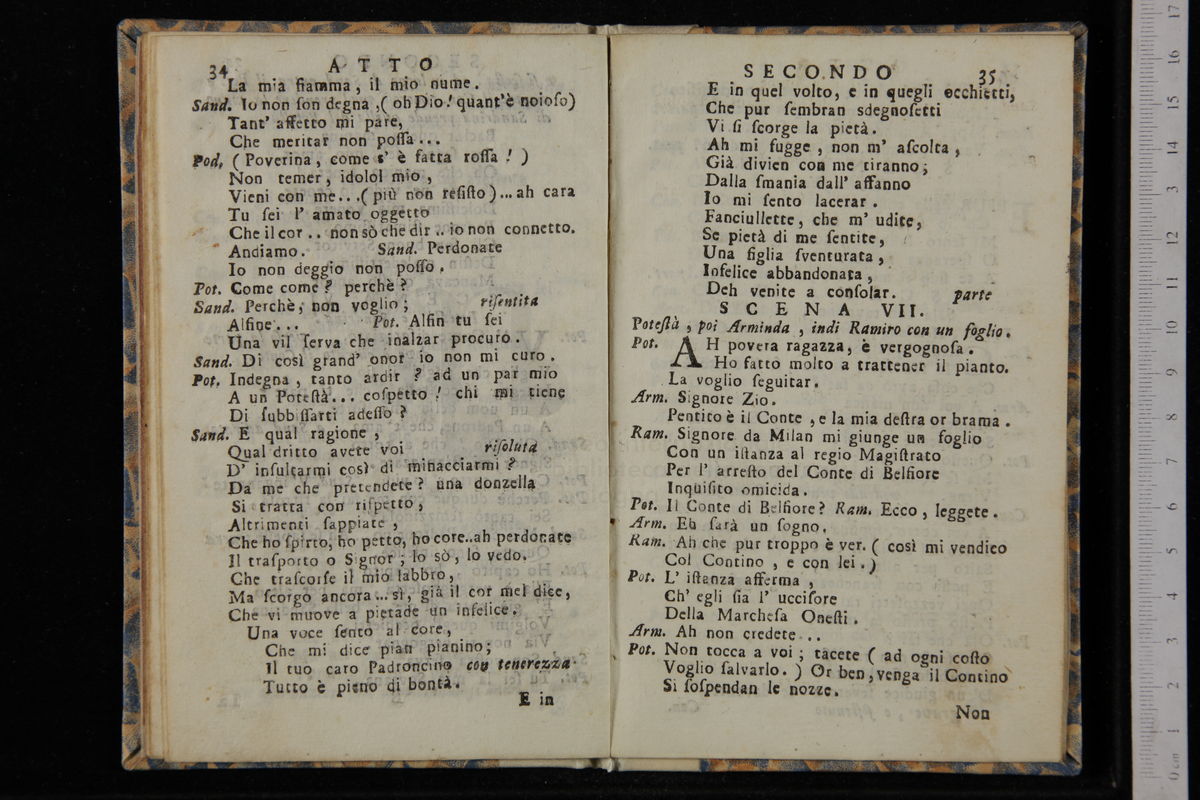 34 ATTO
La mia fiamma, il mio nume.
Sand. Io non ſon degna, (oh Dio! quant'è noioſo)
Tant' affetto mi pare,
Che meritar non poſſa...
Pod, (Poverina, come s' è fatta roſſa!)
Non temer, idolol mio,
Vieni con me...(più non reſiſto)...ah cara
Tu ſei l' amato oggetto
Che il cor.. non sò che dir.. io non connetto.
Andiamo. Sand. Perdonate
Io non deggio non poſſo.
Pot. Come come? perchè?
Sand. Perchè, non voglio; riſentita
Alfine... Pot. Alfin tu ſei
Una vil ſerva che inalzar procuro.
Sand. Di così grand' onor io non mi curo.
Pot. Indegna, tanto ardir? ad un par mio
A un Poteſtà... coſpetto! chi mi tiene
Di ſubbiſſarti adeſſo?
Sand. E qual ragione,
Qual dritto avete voi riſoluta
D' inſultarmi così di minacciarmi?
Da me che pretendete? una donzella
Si tratta con riſpetto,
Altrimenti ſappiate,
Che ho ſpirto, ho petto, ho core..ah perdonate
Il traſporto o Signor; lo sò, lo vedo.
Che traſcorſe il mio labbro,
Ma ſcorgo ancora...sì, già il cor mel dice,
Che vi muove a pietade un infelice.
Una voce ſento al core,
Che mi dice pian pianino;
Il tuo caro Padroncino con tenerezza
Tutto è pieno di bontà.
E in
SECONDO 35
E in quel volto, e in quegli occhietti,
Che pur ſembran sdegnoſetti
Vi ſi ſcorge la pietà.
Ah mi fugge, non m' aſcolta,
Già divien con me tiranno;
Dalla ſmania dall' affanno
Io mi ſento lacerar.
Fanciullette, che m' udite,
Se pietà di me ſentite,
Una figlia ſventurata,
Infelice abbandonata,
Deh venite a conſolar. parte
SCENA VII.
Poteſtà, poi Arminda, indi Ramiro con un foglio.
Pot. AH povera ragazza, è vergognoſa.
Ho fatto molto a trattener il pianto.
La voglio ſeguitar.
Arm. Signore Zio.
Pentito è il Conte, e la mia deſtra or brama.
Ram. Signore da Milan mi giunge un foglio
Con un iſtanza al regio Magiſtrato
Per l' arreſto del Conte di Belfiore
Inquiſito omicida.
Pot. Il Conte di Belfiore? Ram. Ecco, leggete.
Arm. Eh ſarà un ſogno.
Ram. Ah che pur troppo è ver. (così mi vendico
Col Contino, e con lei.)
Pot. L' iſtanza afferma,
Ch' egli ſia l' ucciſore
Della Marcheſa Oneſti.
Arm. Ah non credete...
Pot. Non tocca a voi; tacete (ad ogni coſto
Voglio ſalvarlo.) Or ben, venga il Contino
Si ſoſpendan le nozze.
Non